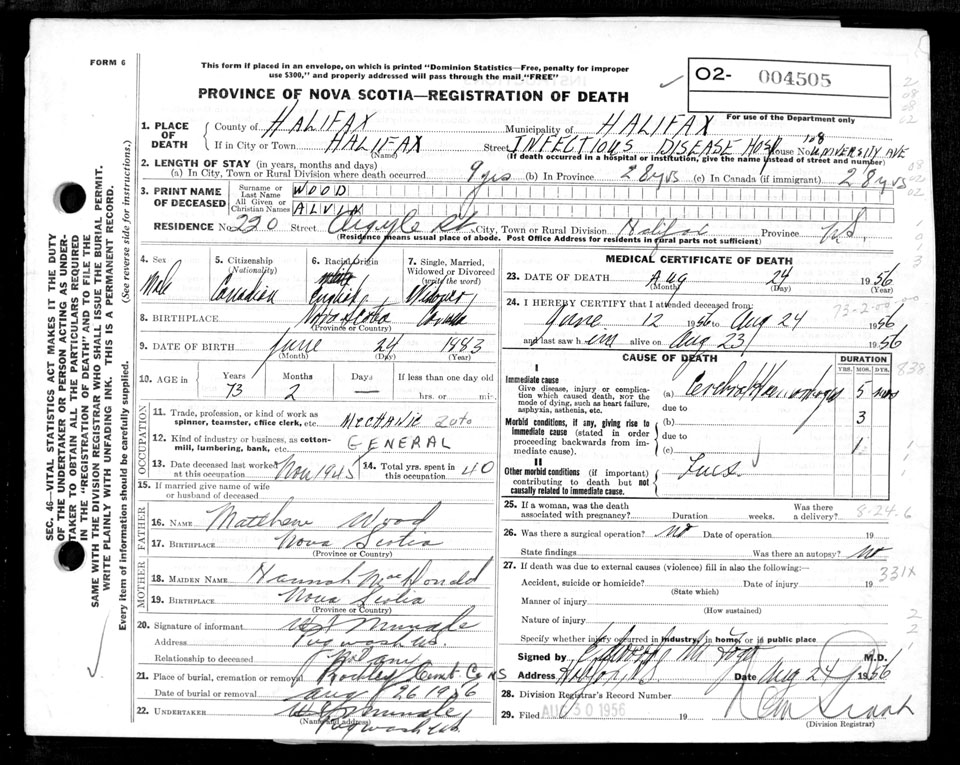 FORM 6
This form if placed in an envelope, on which is printed "Dominion Statistics—Free, penalty for improper
use $300," and properly addressed will pass through the mail "FREE"
PROVINCE OF NOVA SCOTIA—REGISTRATION OF DEATH
O2- 004505
For use of the Department only
1. PLACE OF DEATH
County of HALIFAX Municipality of HALIFAX
If in City or Town HALIFAX Street INFECTIOUS DISEASE HOSP House No. 108 UNIVERSITY AVE
(Name) (If death occurred in a hospital or institution, give the name instead of street and number)
2. LENGTH OF STAY (in years, months and days)
(a) In City, Town or Rural Division where death occurred 9 yrs (b) In Province 28 yrs (c) In Canada (if immigrant) 28 yrs
3. PRINT NAME OF DECEASED
Surname or Last Name WOOD
All Given or Christian Names ALVIN
RESIDENCE No. 220 Street Argyle St City, Town or Rural Division Halifax Province N.S.
(Residence means usual place of abode. Post Office Address for residents in rural parts not sufficient)
4. Sex Male
5. Citizenship (Nationality) Canadian
6. Racial Origin English
7. Single, Married, Widowed or Divorced (write the word) Widower
8. BIRTHPLACE Nova Scotia Canada
(Province or Country)
9. DATE OF BIRTH June 24 1883
(Month) (Day) (Year)
10. AGE in Years Months Days If less than one day old
73 2 — hrs. or min.
OCCUPATION
11. Trade, profession, or kind of work as spinner, teamster, office clerk, etc. MECHANIC
12. Kind of industry or business, as cotton-mill, lumbering, bank, etc. GENERAL
13. Date deceased last worked at this occupation Nov 1945
14. Total yrs. spent in this occupation 40
15. If married give name of wife or husband of deceased
FATHER
16. NAME Matthew Wood
17. BIRTHPLACE Nova Scotia
(Province or Country)
MOTHER
18. MAIDEN NAME Hannah MacDonald
19. BIRTHPLACE Nova Scotia
(Province or Country)
20. Signature of informant
Address Pugwash N.S.
Relationship to deceased
21. Place of burial, cremation or removal Cemt. Co NS
Date of burial or removal Aug 26 1956
22. UNDERTAKER
(Name and address) Pugwash
MEDICAL CERTIFICATE OF DEATH
23. DATE OF DEATH Aug 24 1956
(Month) (Day) (Year)
24. I HEREBY CERTIFY that I attended deceased from:
June 12 1956 to Aug 24 1956
and last saw him alive on Aug 23 1956
CAUSE OF DEATH
DURATION
YRS. MOS. DYS.
I
Immediate cause
Give disease, injury or complication which caused death, NOT the mode of dying, such as heart failure, asphyxia, asthenia, etc.
(a) Cerebral Haemorrhage
due to
Morbid conditions, if any, giving rise to immediate cause (stated in order proceeding backwards from immediate cause).
(b)
due to
(c)
II
Other morbid conditions (if important) contributing to death but not causally related to immediate cause.
25. If a woman, was the death associated with pregnancy? Duration weeks. Was there a delivery?
8-24-6
26. Was there a surgical operation? No Date of operation 19
State findings Was there an autopsy? No
27. If death was due to external causes (violence) fill in also the following:—
331X
Accident, suicide or homicide? Date of injury 19
(State which)
Manner of injury
(How sustained)
Nature of injury
Specify whether injury occurred in industry, in home, or in public place
Signed by M.D.
Address Date Aug 24 1956
28. Division Registrar's Record Number
29. Filed AUG 30 1956 19
(Division Registrar)
SEC. 46—VITAL STATISTICS ACT MAKES IT THE DUTY
OF THE UNDERTAKER OR PERSON ACTING AS UNDER-
TAKER TO OBTAIN ALL THE PARTICULARS REQUIRED
IN THE "REGISTRATION OF DEATH" AND TO FILE THE
SAME WITH THE DIVISION REGISTRAR WHO SHALL ISSUE THE BURIAL PERMIT.
WRITE PLAINLY WITH UNFADING INK. THIS IS A PERMANENT RECORD.
Every item of information should be carefully supplied. (See reverse side for instructions.)